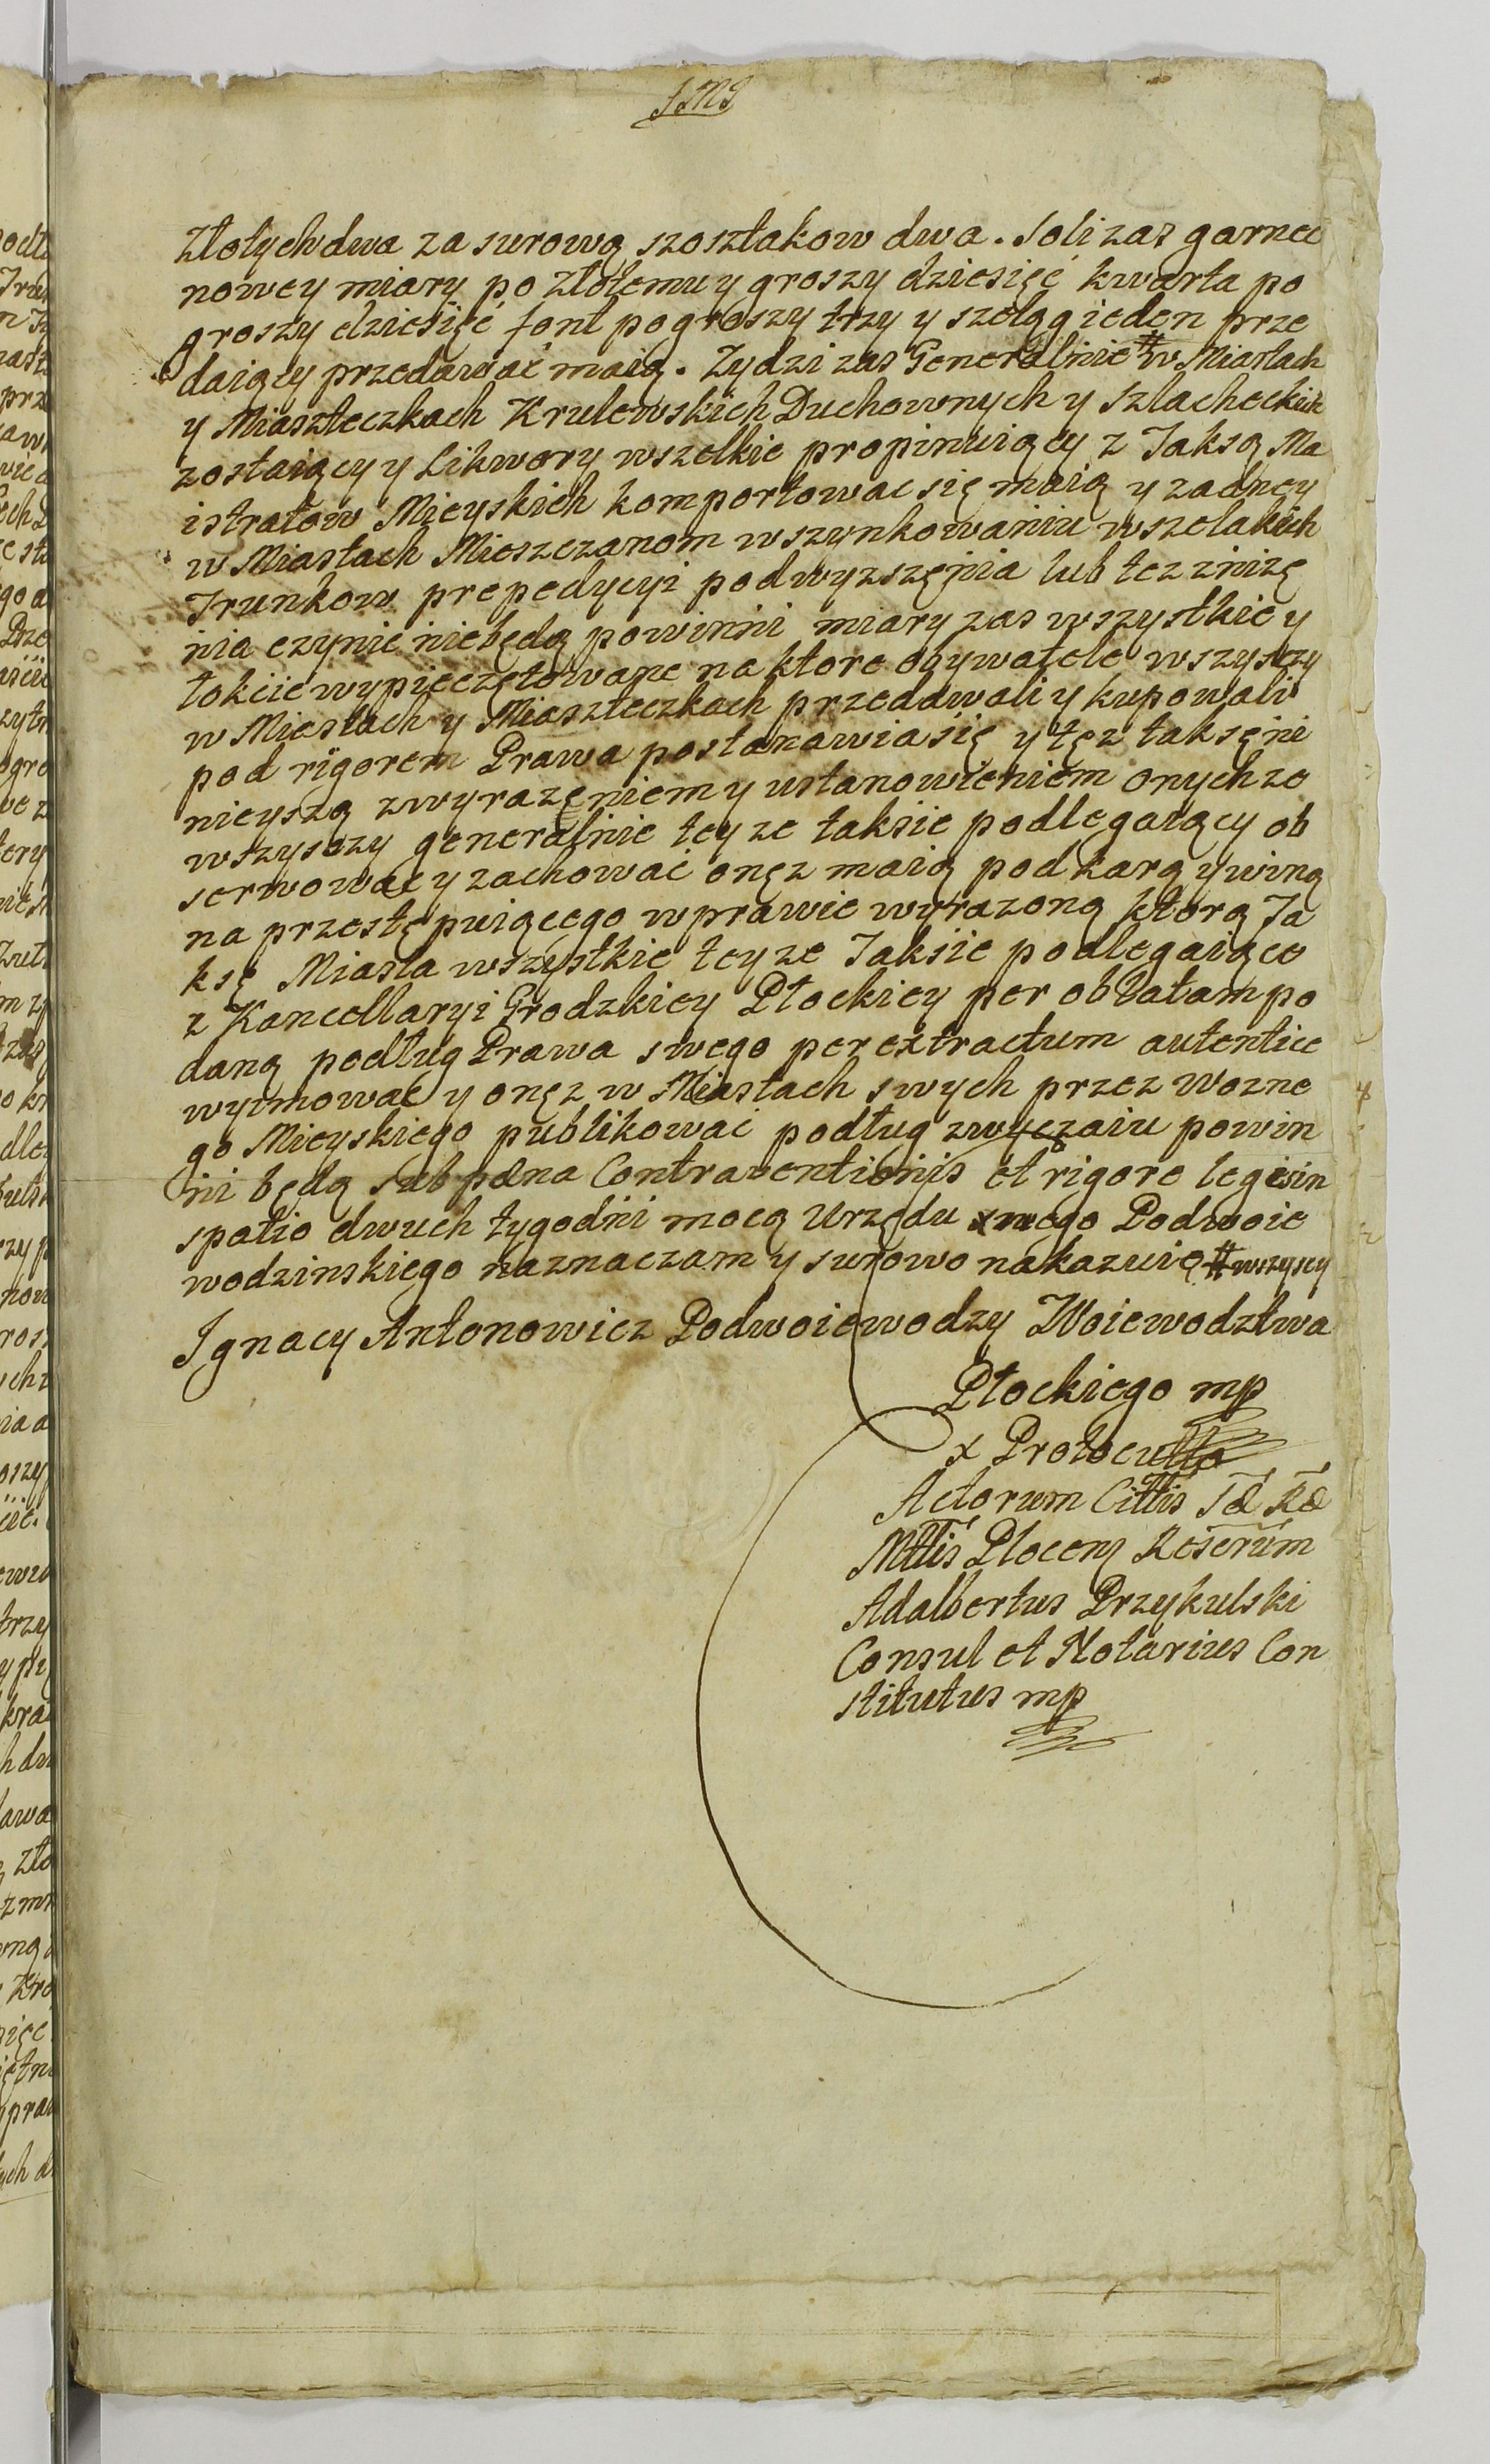 JMJ
Złotych dwa za surową szosztakow dwa. Soli zas garnec
nowey miary po złotemu y groszy dziesięć kwarta po
groszy dziesięć font po groszy trzy y szeląg ieden prze
daiący przedawać maią. Zydzi zas Generalnie # w Miastach
y Miaszteczkach Krulewskich Duchownych y Szlacheckich
zostaiący y Likwory wszelkie propinuiący z Taksą Ma
istratow Mieyskich komportowac się maią y zadney
w Miastach Mieszczanom w szynkowaniu wszelakich
Trunkow prepedycyi podwyzszęnia lub tez znizę
nia czynic niebędą powinni miary zas wszystkie y
łokcie wypieczętowane na ktore obywatele wszyszy
w Miastach y Miaszteczkach przedawali y kupowali
pod rigorem Prawa postanawia się y tęz taksę ni
nieyszą z wyrazęniem y ustanowieniem onych ze
wszyszy generalnie teyze taksie podlegaiący ob
serwowac y zachować onęz maią pod karą y winą
na przestępuiącego w prawie wyrazoną ktorą Ta
ksę Miasta wszystkie teyze Taksiie podlegaiące
z Kancellaryi Grodzkiey Płockiey per oblatam po
daną podług Prawa swego per extractum autentice
wyimować y onęz w Miastach swych przez Wozne
go Mieyskiego publikować podług zwyczaiu powin
ni będą sub pæna Contraventionis et rigore legis in
spatio dwuch tygodni mocą Urzędu mego Podwoie
wodzinskiego naznaczam y surowo nakazuię # wszyscy
Ignacy Antonowicz Podwoiewodzy Woiewodztwa
Płockiego mp
x Protocullo
Actorum Cittis Sæ Ræ
Mttis Plocens Reserum
Adalbertus Przykulski
Consul et Notarius Con
stitutus mp